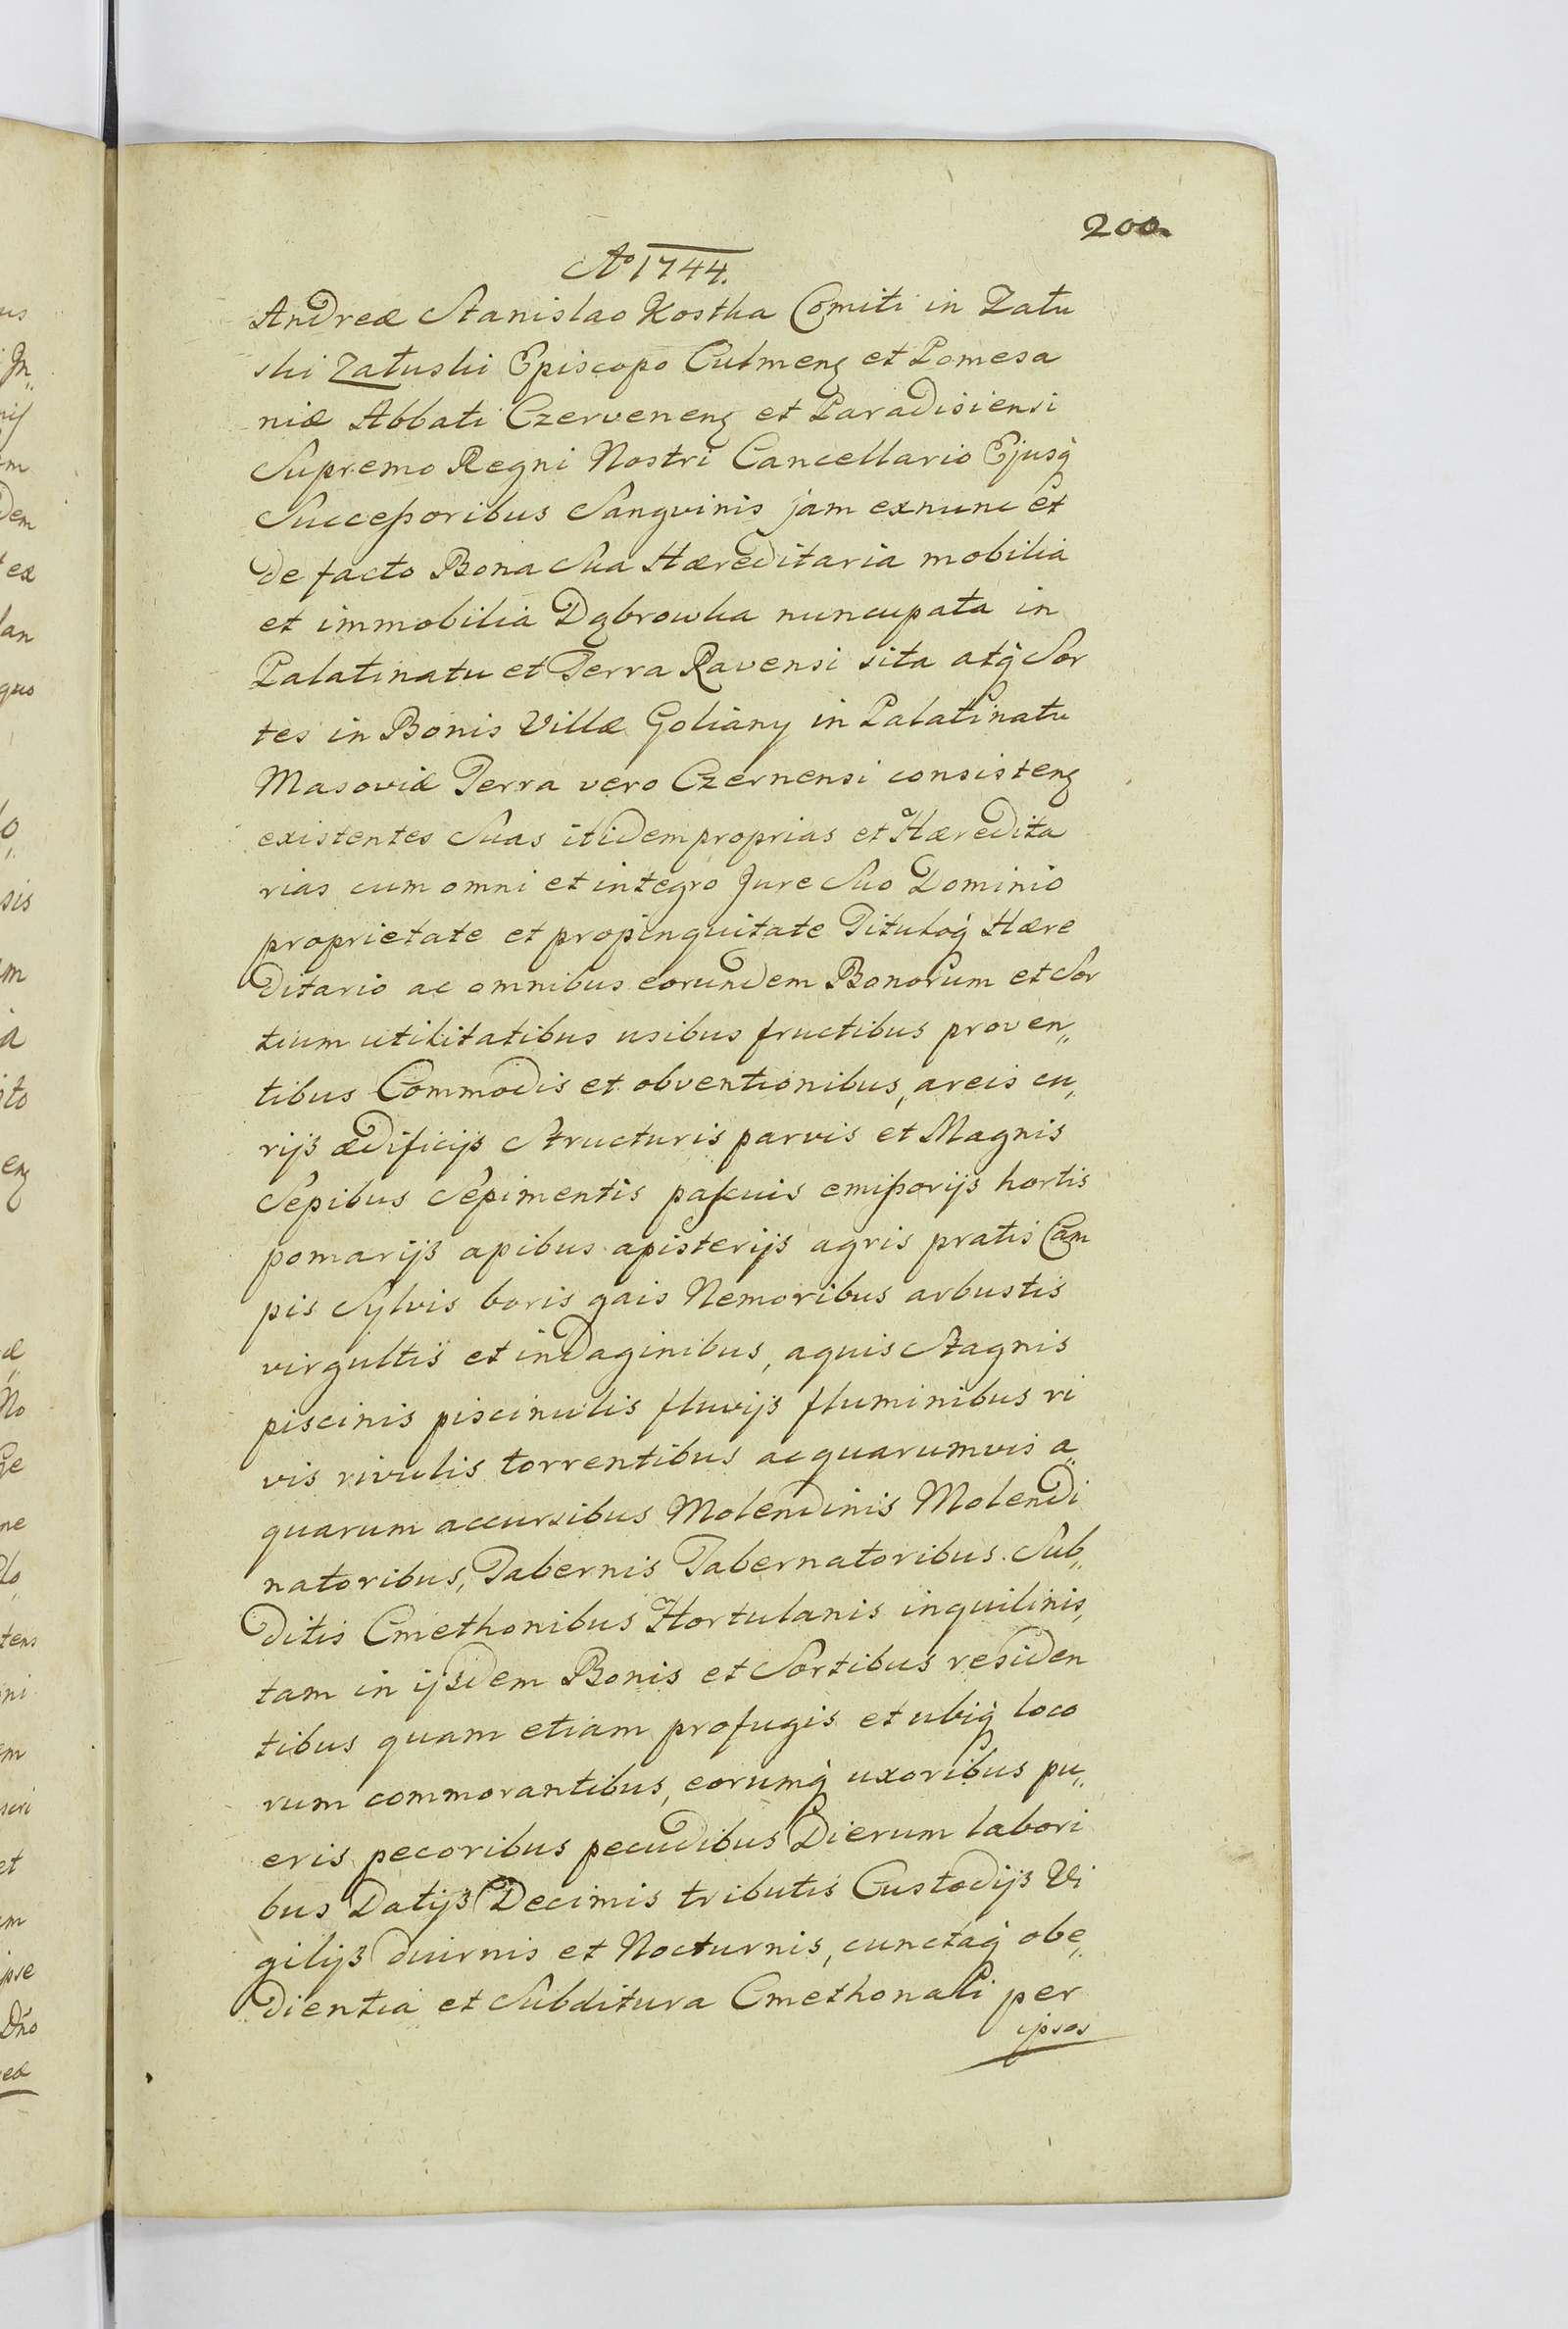 200.
Aо 1744.
Andreæ Stanislao Kostka Comiti in Zału
ski Załuski Episcopo Culmenę et Pomesa
niæ Abbati Czervenenę et Paradisiensi
Supremo Regni Nostri Cancellario Ejusq̃
Succeßoribus Sangvinis jam exnunc et
de facto Bona Sua Hæreditaria mobilia
et immobilia Dąbrowka nuncupata in
Palatinatu et Terra Ravensi sita atq̃ Sor
tes in Bonis Villæ Goliany in Palatinatu
Masoviæ Terra vero Czernensi consistenę
existentes Suas itidem proprias et Hæredita
rias cum omni et integro Jure Suo Dominio
proprietate et propinquitate Tituloq̃ Hære
ditario ac omnibus eorundem Bonorum et Sor
tium utilitatibus usibus fructibus proven„
tibus Commodis et obventionibus, areis cu„
rijs ædificijs Structuris parvis et Magnis
Sepibus Sepimentis pascuis emißorijs hortis
pomarijs apibus apisterijs agris pratis Cam
pis Sylvis boris gais Nemoribus arbustis
virgultis et indaginibus, aquis Stagnis
piscinis piscinulis fluvijs fluminibus ri
vis rivulis torrentibus ac quarumvis a„
quarum accursibus Molendinis Molendi
natoribus, Tabernis Tabernatoribus. Sub„
ditis Cmethonibus Hortulanis inquilinis,
tam in ijsdem Bonis et Sortibus residen
tibus quam etiam profugis et ubiq̃ loco
rum commorantibus, eorumq̃ uxoribus pu„
eris pecoribus pecudibus Dierum labori
bus Datijs Decimis tributis Custodijs Vi
gilijs diurnis et Nocturnis, cunctaq̃ obe„
dientia et Subditura Cmethonali per
ipsos